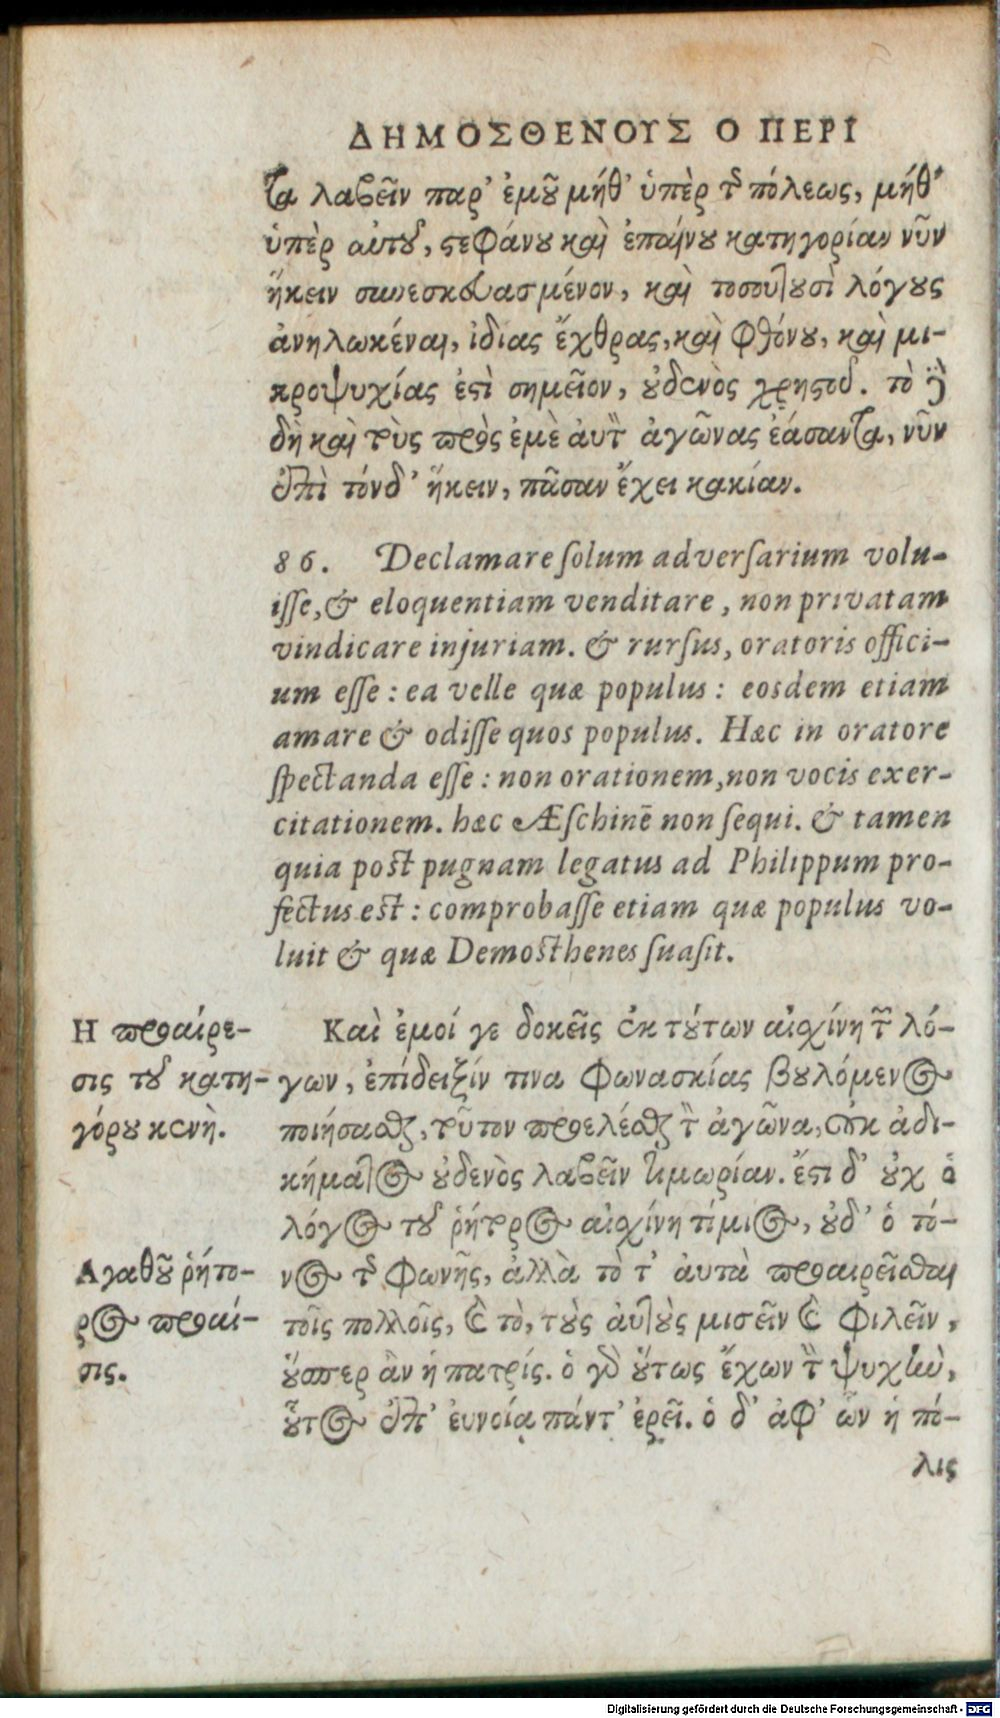 ΔΗΜΟΣΘΕΝΟΥΣ Ο ΠΕΡΙ
τα λαβεῖν παρ᾽ ἐμοῦ μήθ᾽ ὑπὲρ τῆς πόλεως, μήθ᾽
ὑπὲρ αὑτοῦ, στεφάνου καὶ ἐπαίνου κατηγορίαν νῦν
ἥκειν συνεσκευασμένον, καὶ τοσουτουσὶ λόγους
ἀνηλωκέναι, ἰδίας ἔχθρας, καὶ φθόνου, καὶ μι-
κροψυχίας ἐστὶ σημεῖον, οὐδενὸς χρηστοῦ. τὸ δὲ
δὴ καὶ τοὺς πρὸς ἐμὲ ἀυτὸν ἀγῶνας ἐάσαντα, νῦν
ἐπὶ τόνδ᾽ ἥκειν, πᾶσαν ἔχει κακίαν.
86. Declamare ſolum adverſarium volu-
iſſe, & eloquentiam venditare, non privatam
vindicare injuriam. & rurſus, oratoris offici-
um eſſe: ea velle quæ populus: eosdem etiam
amare & odiſſe quos populus. Hæc in oratore
ſpectanda eſſe: non orationem, non vocis exer-
citationem. hæc Æſchinē non ſequi. & tamen
quia poſt pugnam legatus ad Philippum pro-
fectus eſt: comprobaſſe etiam quæ populus vo-
luit & quæ Demoſthenes ſuaſit.
Η προαίρε-
σις τοῦ κατη-
γόρου κενὴ.
Καὶ ἐμοί γε δοκεῖς ἐκ τούτων αἰσχίνη τῶν λό-
γων, ἐπίδειξίν τινα φωνασκίας βουλόμενος
ποιήσασθαι, τοῦτον προελέσθαι τὸν ἀγῶνα, οὐκ ἀδι-
κήματος οὐδενὸς λαβεῖν τιμωρίαν. ἔστι δ᾽ οὐχ ὁ
λόγος τοῦ ῥήτορος αἰσχίνη τίμιος, οὐδ᾽ ὁ τό-
Αγαθοῦ ῥήτο-
ρος προαί-
σις.
νος τῆς φωνῆς, ἀλλὰ τὸ τ᾽ ἀυτὰ προαιρεῖσθαι
τοῖς πολλοῖς, καὶ τὸ, τοὺς ἀυτοὺς μισεῖν καὶ φιλεῖν,
οὕσπερ ἂν ἡ πατρίς. ὁ γὰρ οὕτως ἔχων τὴν ψυχὴν,
οὗτος ἐπ᾽ ἐυνοίᾳ πάντ᾽ ἐρεῖ. ὁ δ᾽ ἀφ᾽ ὧν ἡ πό-
λις
Digitalisierung gefördert durch die Deutsche Forschungsgemeinschaft - DFG